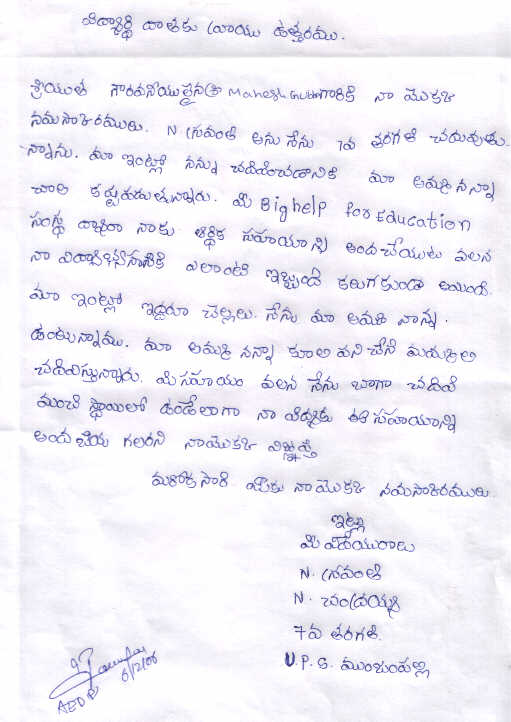 విద్యార్థి దాతకు వ్రాయు ఉత్తరము.
శ్రీయుత గౌరవనీయులైన Mahesh గారికి నా యొక్క
నమస్కారములు. N స్రవంతి అను నేను 7వ తరగతి చదువుతు
న్నాను. మా ఇంట్లో నన్ను చదివించడానికి మా అమ్మ నన్నా
చాల కష్టపడుతున్నారు. మీ Big help for Education
సంస్థ ద్వారా నాకు ఆర్థిక సహాయాన్ని అందచేయుట వలన
నా విద్యాభ్యాసానికి ఎలాంటి ఇబ్బంది కలుగకుండా అయింది.
మా ఇంట్లో ఇద్దరూ చెల్లెలు. నేను మా అమ్మ నాన్న.
ఉంటున్నాము. మా అమ్మ నన్నా కూలి పని చేసి మమ్మల్ని
చదివిస్తున్నారు. మీ సహాయం వలన నేను బాగా చదివి
మంచి స్థాయిలో ఉండేలాగా నా విద్యకు ఈ సహాయాన్ని
అంద చేయ గలరని నాయొక్క విజ్ఞప్తి
మరొక్క సారి మీకు నా యొక్క నమస్కారములు.
ఇట్లు
మీ విధేయురాలు
N. స్రవంతి
N. చంద్రయ్య
7వ తరగతి.
U.P.S. ముంజంపల్లి
6/12/06